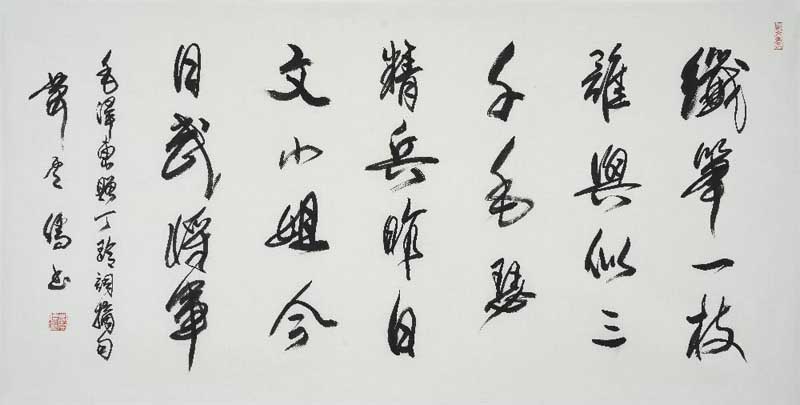 纖筆一枝
誰與似三
千毛瑟
精兵昨日
文小姐今
日武將軍
毛澤東贈丁玲詞摘句
书